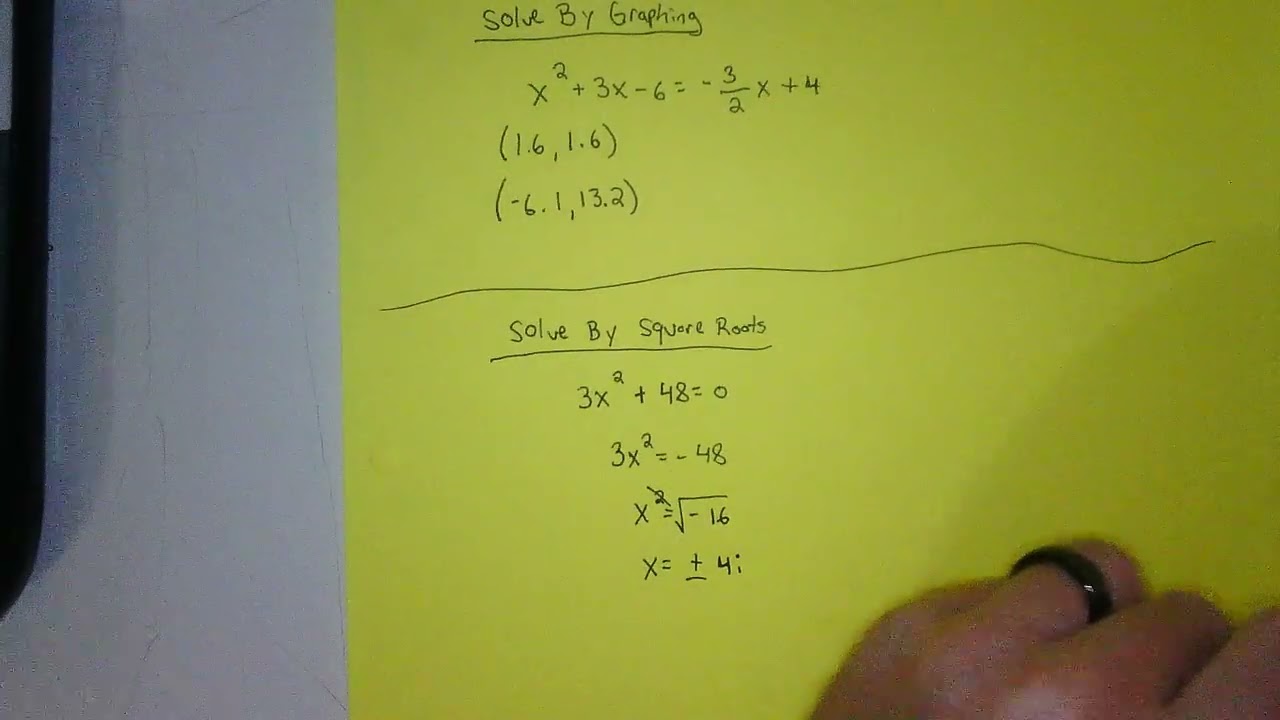 Solve By Graphing
x² + 3x - 6 = -3/2 x + 4
(1.6, 1.6)
(-6.1, 13.2)
Solve By Square Roots
3x² + 48 = 0
3x² = - 48
x² = √-16
x = ± 4i